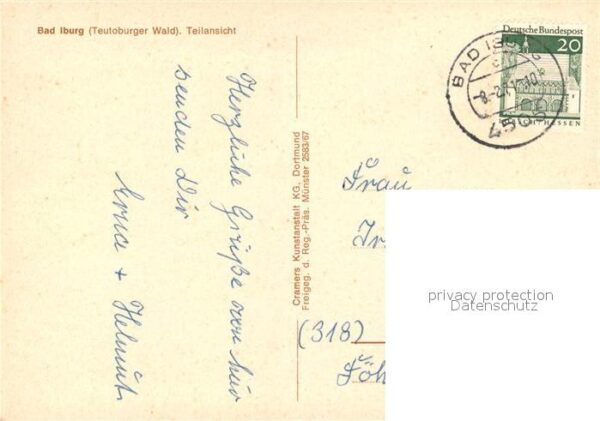 Bad Iburg (Teutoburger Wald). Teilansicht
Herzliche Grüße von hier
senden Dir
Erna + Helmut
Cramers Kunstanstalt KG. Dortmund
Freigeg. d. Reg.-Präs. Münster 2583/67
Deutsche Bundespost
20
BAD IBURG
4505
HESSEN
Frau
(318)
privacy protection
Datenschutz